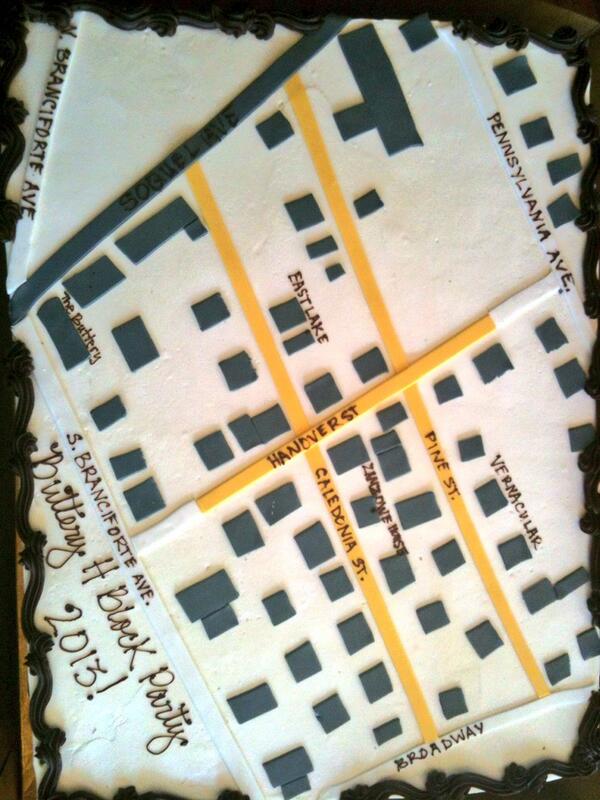 N. BRANCIFORTE AVE
SOQUEL AVE
PENNSYLVANIA AVE.
The Buttery
EASTLAKE
HANOVER ST
PINE ST.
VERNACULAR
CALEDONIA ST.
S. BRANCIFORTE AVE.
Buttery H Block Party
2013!
BROADWAY